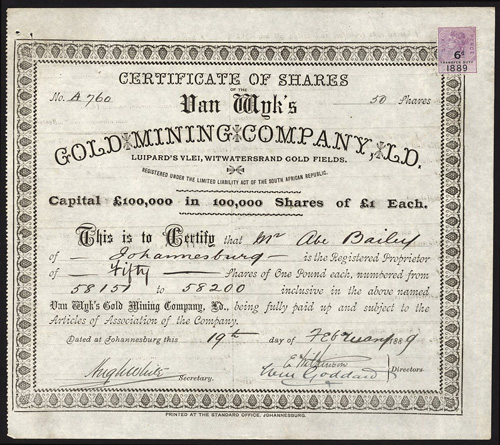 6d
TRANSFER DUTY
1889
CERTIFICATE OF SHARES
OF THE
No. A 760 Van Wyk's 50 Shares
GOLD MINING COMPANY, LD.
LUIPARD'S VLEI, WITWATERSRAND GOLD FIELDS.
REGISTERED UNDER THE LIMITED LIABILITY ACT OF THE SOUTH AFRICAN REPUBLIC.
Capital £100,000 in 100,000 Shares of £1 Each.
This is to Certify that Mr Abe Bailey
of Johannesburg is the Registered Proprietor
of fifty Shares of One Pound each, numbered from
58151 to 58200 inclusive in the above named
Van Wyk's Gold Mining Company, Ld., being fully paid up and subject to the
Articles of Association of the Company.
Dated at Johannesburg this 19th day of February 1889
Hugh White
Secretary.
Goddard
Directors
PRINTED AT THE STANDARD OFFICE, JOHANNESBURG.